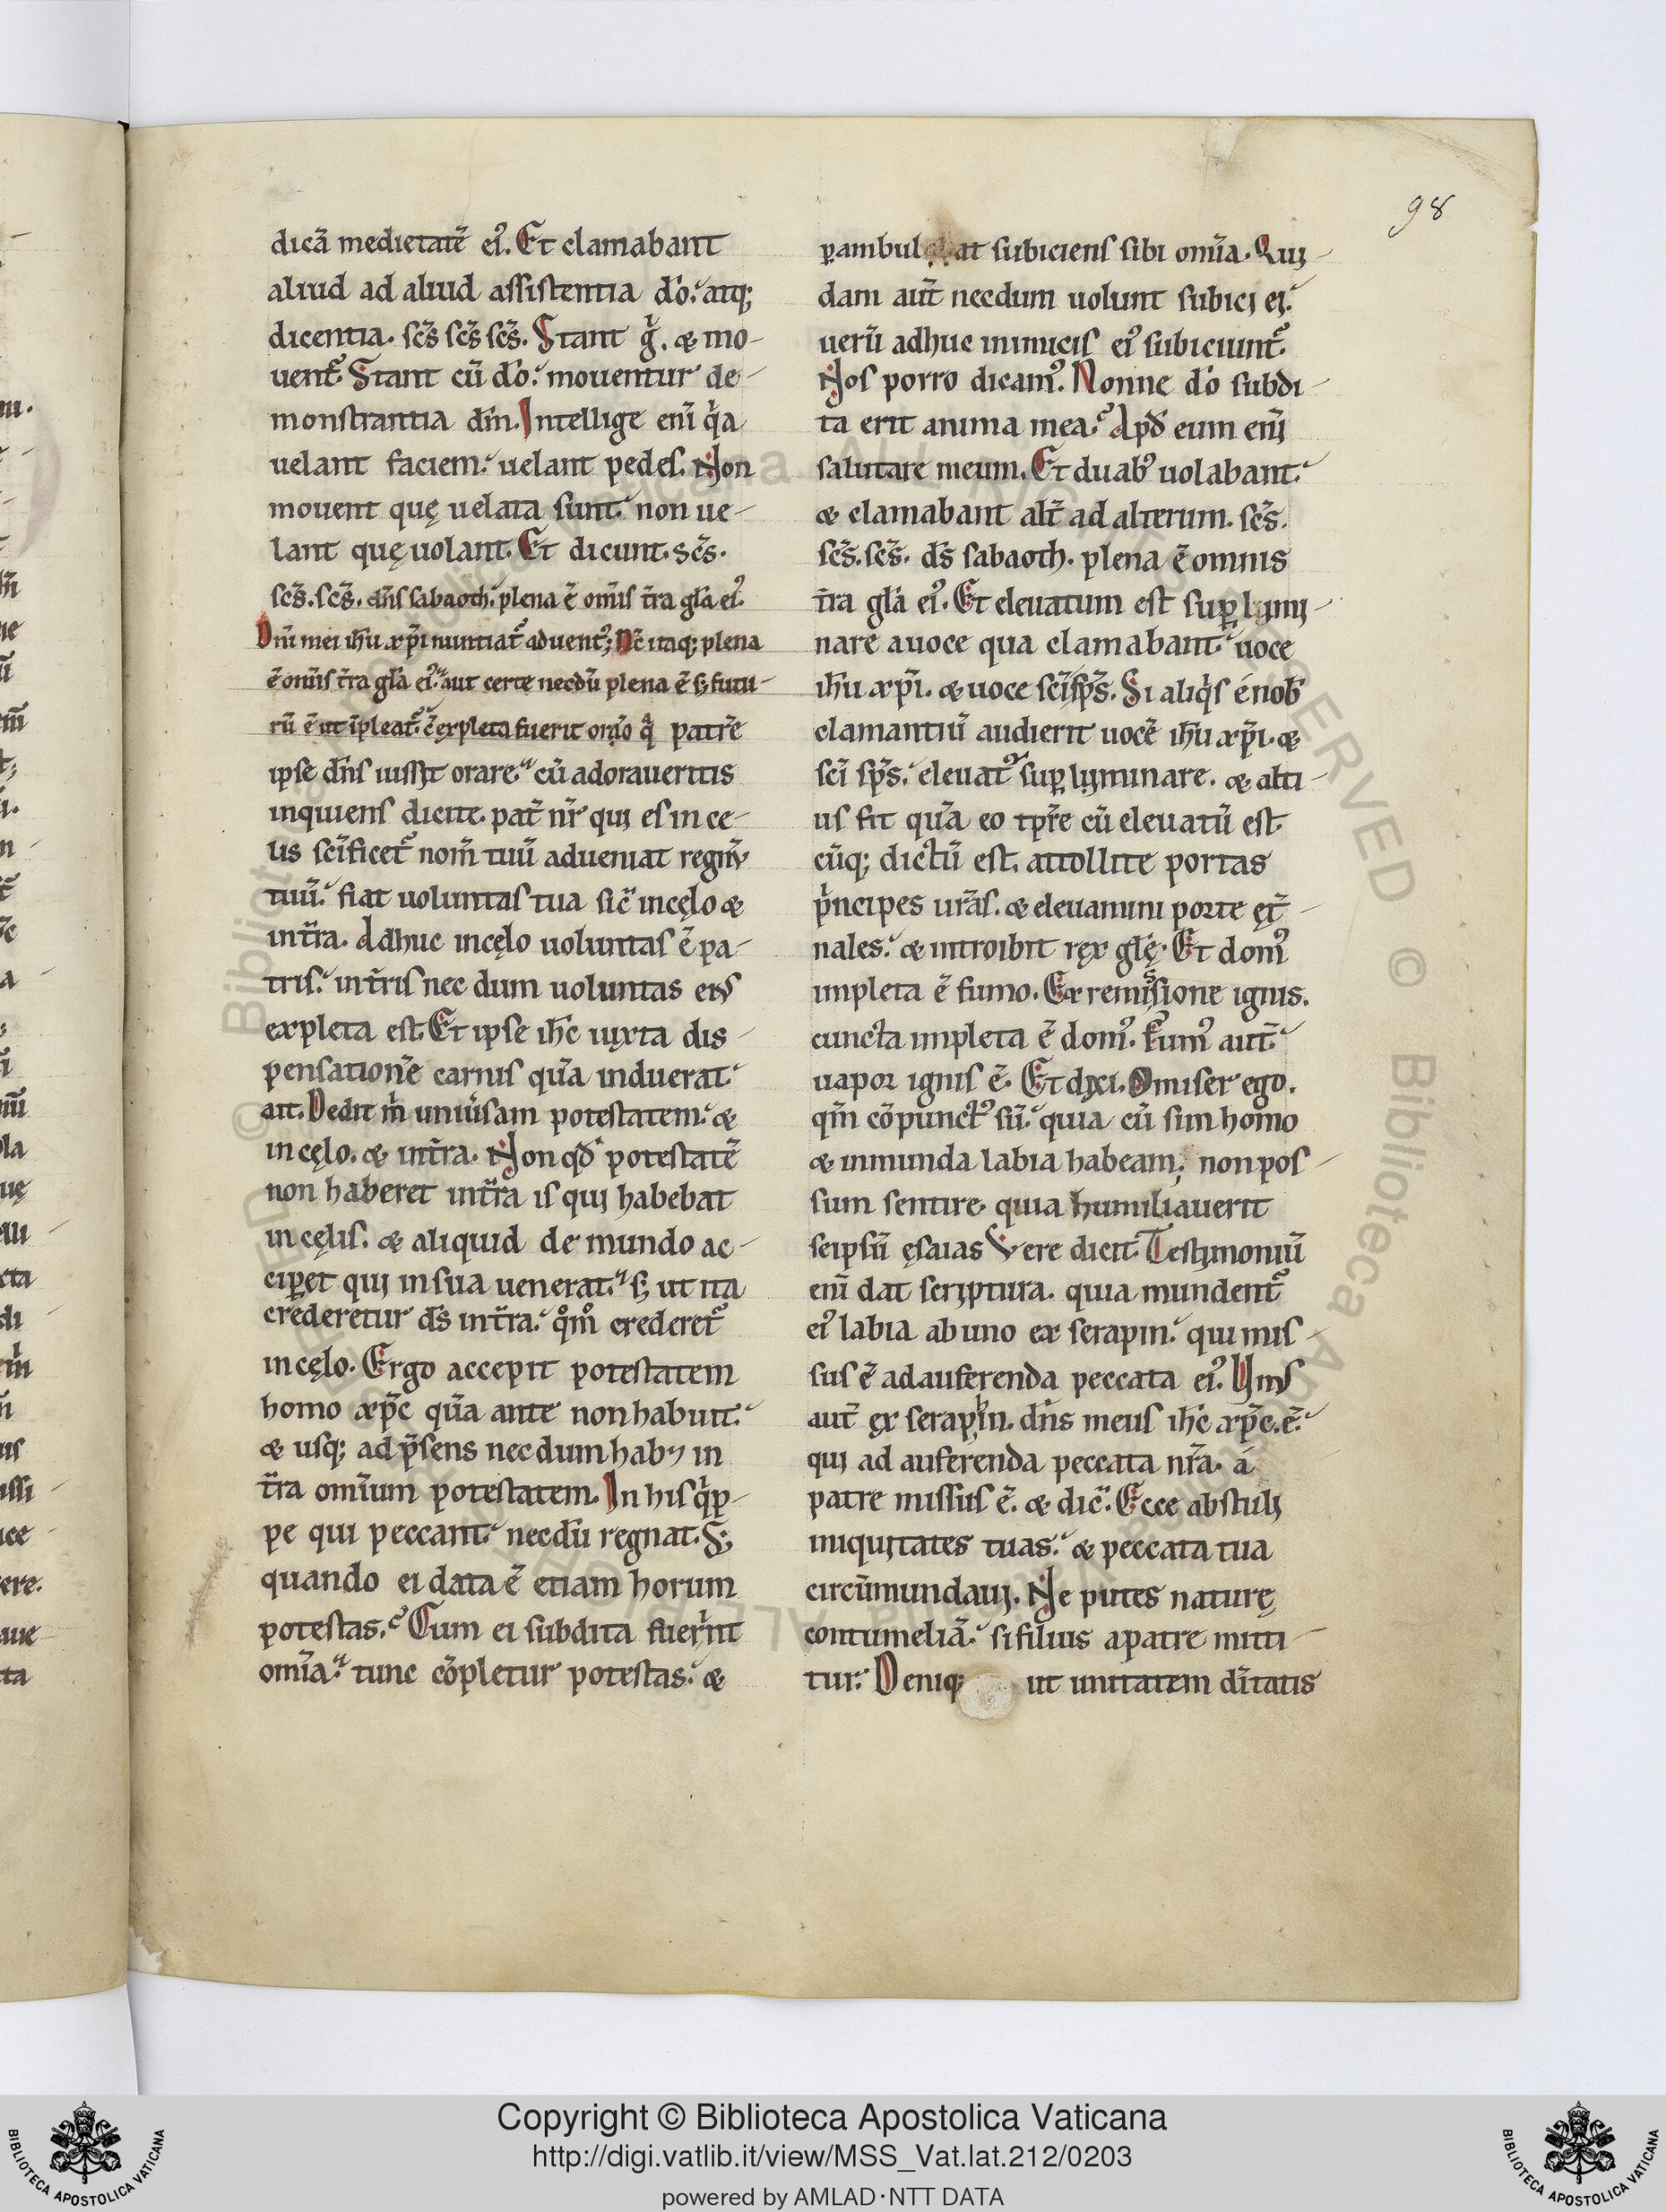 98
dicā medietatē ei᾿. Et clamabant
aliud ad aliud assistentia dō. atq;
dicentia. scs̄ scs̄ scs̄. Stant g̓. & mo-
uent᾿. Stant cū dō. mouentur de-
monstrantia dm̄. Intellige eni̅ q̓a
uelant faciem. uelant pedes. Non
mouent quę uelata sunt. non ue-
lant quę uolant. Et dicunt. scs̄.
scs̄. scs̄. dn̄s sabaoth. plena ē om̄is t̄ra gl̄a ei᾿.
Dn̄i mei ih̄u xp̄i nuntiat᾿ aduent᾿; Nc̄ itaq; plena
ē om̄is t̄ra gl̄a ei᾿. aut certe necdū plena ē s; futu-
rū ē ut īpleat᾿. c̄ expleta fuerit orat̄o q̓ patrē
ipse dn̄s iussit orare. cū adoraueritis
inquiens dicite. pat̄ nr̄ qui es in ce-
lis sc̄ificet᾿ nom̄ tuū adueniat regnū
tuū. fiat uoluntas tua sic̄ in cęlo &
in t̄ra. Adhuc in cęlo uoluntas ē pa-
tris. in t̄ris nec dum uoluntas eius
expleta est. Et ipse ih̄c iuxta dis-
pensationē carnis quā induerat.
ait. Dedit m̓ uniūsam potestatem. &
in cęlo. & in t̄ra. Non qđ potestatē
non haberet in t̄ra is qui habebat
in cęlis. & aliquid de mundo ac-
ciꝑet qui in sua uenerat. s; ut ita
crederetur ds̄ in t̄ra. qm̊ crederet᾿
in cęlo. Ergo accepit potestatem
homo xp̄c quā ante non habuit.
& usq; ad p̄sens nec dum hab& in
t̄ra om̄ium potestatem. In his q̓p-
pe qui peccant. necdū regnat. S;
quando ei data ē etiam horum
potestas. Cum ei subdita fuer̄int
om̄ia. tunc cōpletur potestas. &
ꝑambul at subiciens sibi om̄ia. Qui-
dam aut̄ necdum uolunt subici ei.
uerū adhuc inimicis ei᾿ subiciunt᾿.
Nos porro dicam᾿. Nonne dō subdi-
ta erit anima mea. Apđ eum eni̅
salutare meum. Et duab᾿ uolabant.
& clamabant alt̄ ad alterum. scs̄.
scs̄. scs̄. ds̄ sabaoth. plena ē omnis
t̄ra gl̄a ei᾿. Et eleuatum est suꝑ lymi-
nare a uoce qua clamabant. uoce
ih̄u xp̄i. & uoce sc̄i sp̄s. Si aliq̓s é nob̄
clamantiū audierit uocē ih̄u xp̄i. &
sc̄i sp̄s. eleuat᾿ suꝑ lyminare. & alti-
us fit quā eo tp̄re cū eleuatū est.
cūq; dictū est. attollite portas
p̓ncipes ur̄as. & eleuamini porte ęt̄-
nales. & introibit rex gl̄ę. Et dom᾿
impleta ē fumo. Ex remissione ignis.
cuncta impleta ē dom᾿. Fum᾿ aut̄.
uapor ignis ē. Et dixi. O miser ego.
qm̄ cōpunct᾿ sū. quia cū sim homo
& inmunda labia habeam. non pos-
sum sentire quia humiliauerit
seipsū ęsaias Vere dicit. Testimoniū
eni̅ dat scriptura. quia mundent᾿
ei᾿ labia ab uno ex serapin. qui mis-
sus ē ad auferenda peccata ei᾿. Unus
aut̄ ex seraphin. dn̄s meus ih̄c xp̄c. ē.
qui ad auferenda peccata nr̄a. á
patre missus ē. & dic̄. Ecce abstuli
iniquitates tuas. & peccata tua
circūmundaui. Ne putes naturę
contumeliā. si filius a patre mitti-
tur. Deniq; ut unitatem di̅tatis
Copyright © Biblioteca Apostolica Vaticana
http://digi.vatlib.it/view/MSS_Vat.lat.212/0203
powered by AMLAD·NTT DATA
BIBLIOTECA APOSTOLICA VATICANA
BIBLIOTECA APOSTOLICA VATICANA